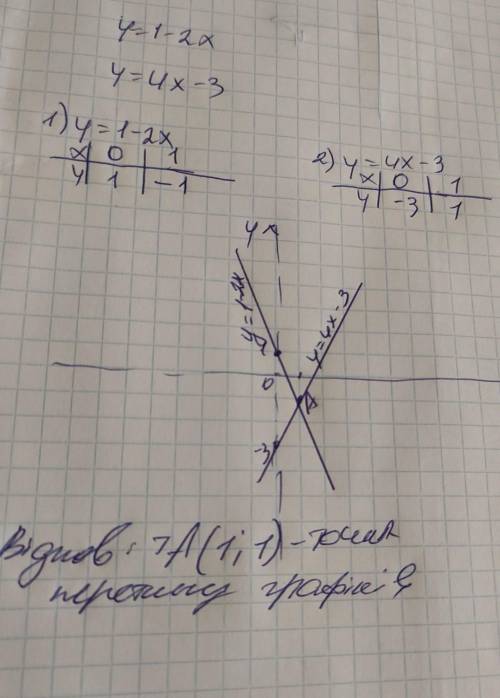 y=1-2x
y=4x-3
1) y=1-2x
x 0 1
y 1 -1
2) y=4x-3
x 0 1
y -3 1
y
y=1-2x
y=4x-3
1
0
A
-3
Відпов: т A(1; 1) - точка
перетину графіків